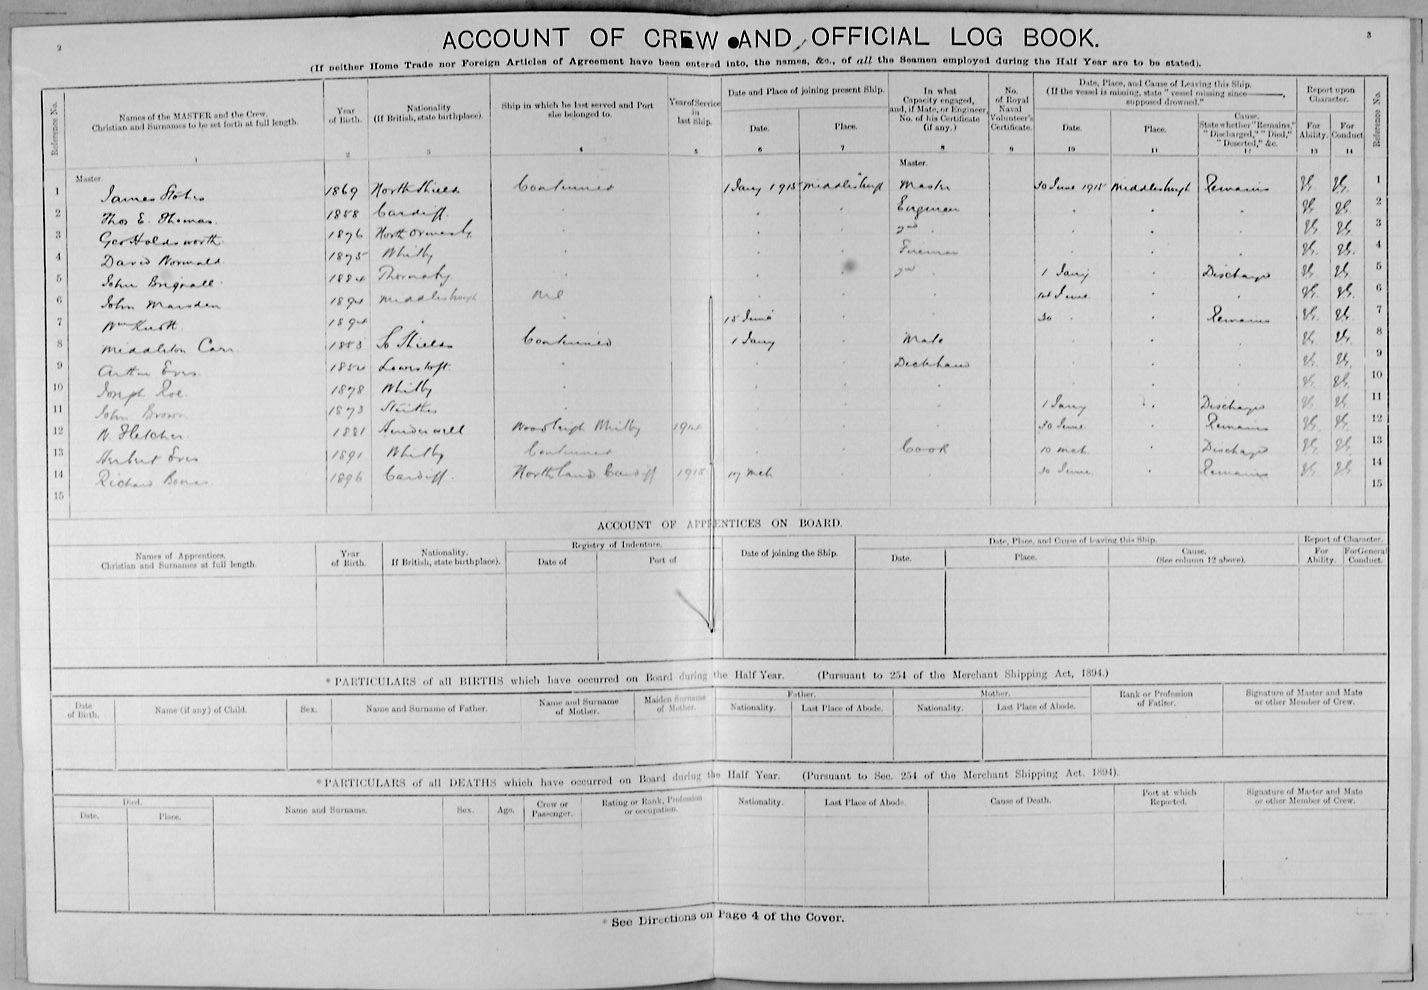 2
3
ACCOUNT OF CREW AND OFFICIAL LOG BOOK.
(If neither Home Trade nor Foreign Articles of Agreement have been entered into, the names, &c., of all the Seamen employed during the Half Year are to be stated).
Reference No.
Names of the MASTER and the Crew, Christian and Surnames to be set forth at full length.
Year of Birth.
Nationality (If British, state birthplace).
Ship in which he last served and Port she belonged to.
Year of Service in last Ship.
Date and Place of joining present Ship.
Date.
Place.
In what Capacity engaged, and, if Mate, or Engineer, No. of his Certificate (if any.)
No. of Royal Naval Volunteer's Certificate.
Date, Place, and Cause of Leaving this Ship. (If the vessel is missing, state "vessel missing since ———, supposed drowned."
Date.
Place.
Cause. State whether "Remains," "Discharged," "Died," "Deserted," &c.
Report upon Character.
For Ability.
For Conduct
Reference No.
1 2 3 4 5 6 7 8 9 10 11 12 13 14
Master. Master.
1 James Stokes 1869 North Shields Continued 1 Jany 1915 Middlesbrough Master 30 June 1915 Middlesbrough Remains VG. VG. 1
2 Thos E. Thomas 1858 Cardiff " " " Engineer " " " VG. VG. 2
3 Geo Holdsworth 1876 North Ormesby " " " 2nd " " " " VG. VG. 3
4 David Normald 1875 Whitby " " " Fireman " " " VG. VG. 4
5 John Brignall 1884 Thornaby " " " 2nd " 1 Jany " Discharged VG. VG. 5
6 John Marsden 1894 Middlesbrough " " " 14 June " " VG. VG. 6
7 Wm 1894 " " 15 June " " 30 " " Remains VG. VG. 7
8 Middleton Carr 1883 So Shields Continued 1 Jany " Mate " " " VG. VG. 8
9 Arthur 1884 Lowestoft " " " Deckhand " " " VG. VG. 9
10 Joseph Roe 1878 Whitby " " " " " " " VG. VG. 10
11 John Brown 1873 Staithes " " " " 1 Jany " Discharged VG. VG. 11
12 W. Fletcher 1881 Hinderwell Woodleigh Whitby 1914 " " " 30 June " Remains VG. VG. 12
13 Herbert 1891 Whitby Continued " " Cook 10 Mch " Discharged VG. VG. 13
14 Richard 1896 Cardiff Northland Cardiff 1915 17 Mch " " 30 June " Remains VG. VG. 14
15 15
ACCOUNT OF APPRENTICES ON BOARD.
Names of Apprentices. Christian and Surnames at full length.
Year of Birth.
Nationality. If British, state birthplace).
Registry of Indenture.
Date of
Port of
Date of joining the Ship.
Date, Place, and Cause of leaving this Ship.
Date.
Place.
Cause. (See column 12 above).
Report of Character.
For Ability.
For General Conduct.
* PARTICULARS of all BIRTHS which have occurred on Board during the Half Year. (Pursuant to 254 of the Merchant Shipping Act, 1894.)
Date of Birth.
Name (if any) of Child.
Sex.
Name and Surname of Father.
Name and Surname of Mother.
Maiden Surname of Mother.
Father.
Nationality.
Last Place of Abode.
Mother.
Nationality.
Last Place of Abode.
Rank or Profession of Father.
Signature of Master and Mate or other Member of Crew.
* PARTICULARS of all DEATHS which have occurred on Board during the Half Year. (Pursuant to Sec. 254 of the Merchant Shipping Act. 1894).
Died.
Date.
Place.
Name and Surname.
Sex.
Age.
Crew or Passenger.
Rating or Rank, Profession or occupation.
Nationality.
Last Place of Abode.
Cause of Death.
Port at which Reported.
Signature of Master and Mate or other Member of Crew.
* See Directions on Page 4 of the Cover.